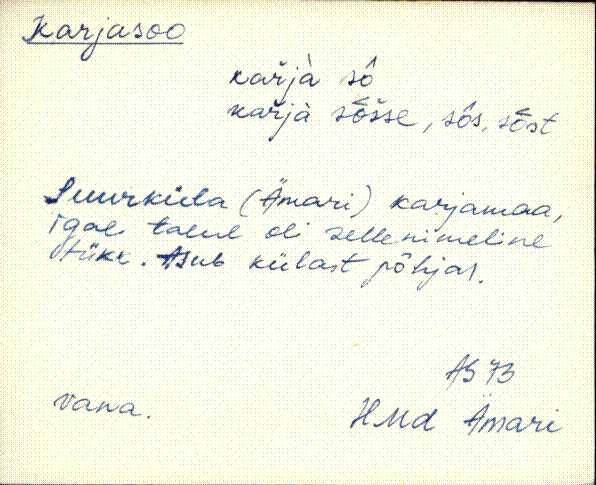 Karjasoo
kar̆jà sô
kar̆jà sō̆sse, sôs, sō̆st
Suurküla (Ämari) karjamaa,
igal talul oli sellenimeline
tükk. Asub külast põhjas.
AS 73
vana.
HMd Ämari